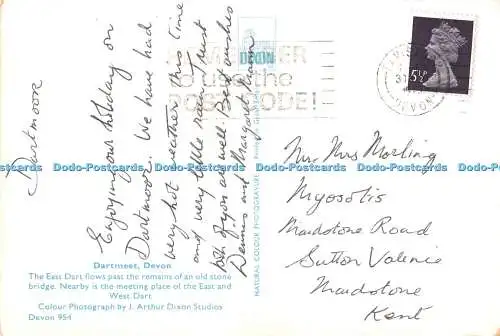 Dartmoor
Enjoying our holiday on
Dartmoor. We have had
very hot weather this time
and very little rain. Trust
both of you are well. Best wishes
Dennis and Margaret
Mr. Mrs Morling
Myosotis
Maidstone Road
Sutton Valence
Maidstone
Kent
REMEMBER
to use the
POSTCODE!
DEVON
5½P
DIXON
Dodo-Postcards Dodo-Postcards Dodo-Postcards Dodo-Postcards Dodo-Postcards Dodo-Postcards
Dartmeet, Devon
The East Dart flows past the remains of an old stone
bridge. Nearby is the meeting place of the East and
West Dart
Colour Photograph by J. Arthur Dixon Studios
Devon 954
NATURAL COLOUR PHOTOGRAVURE